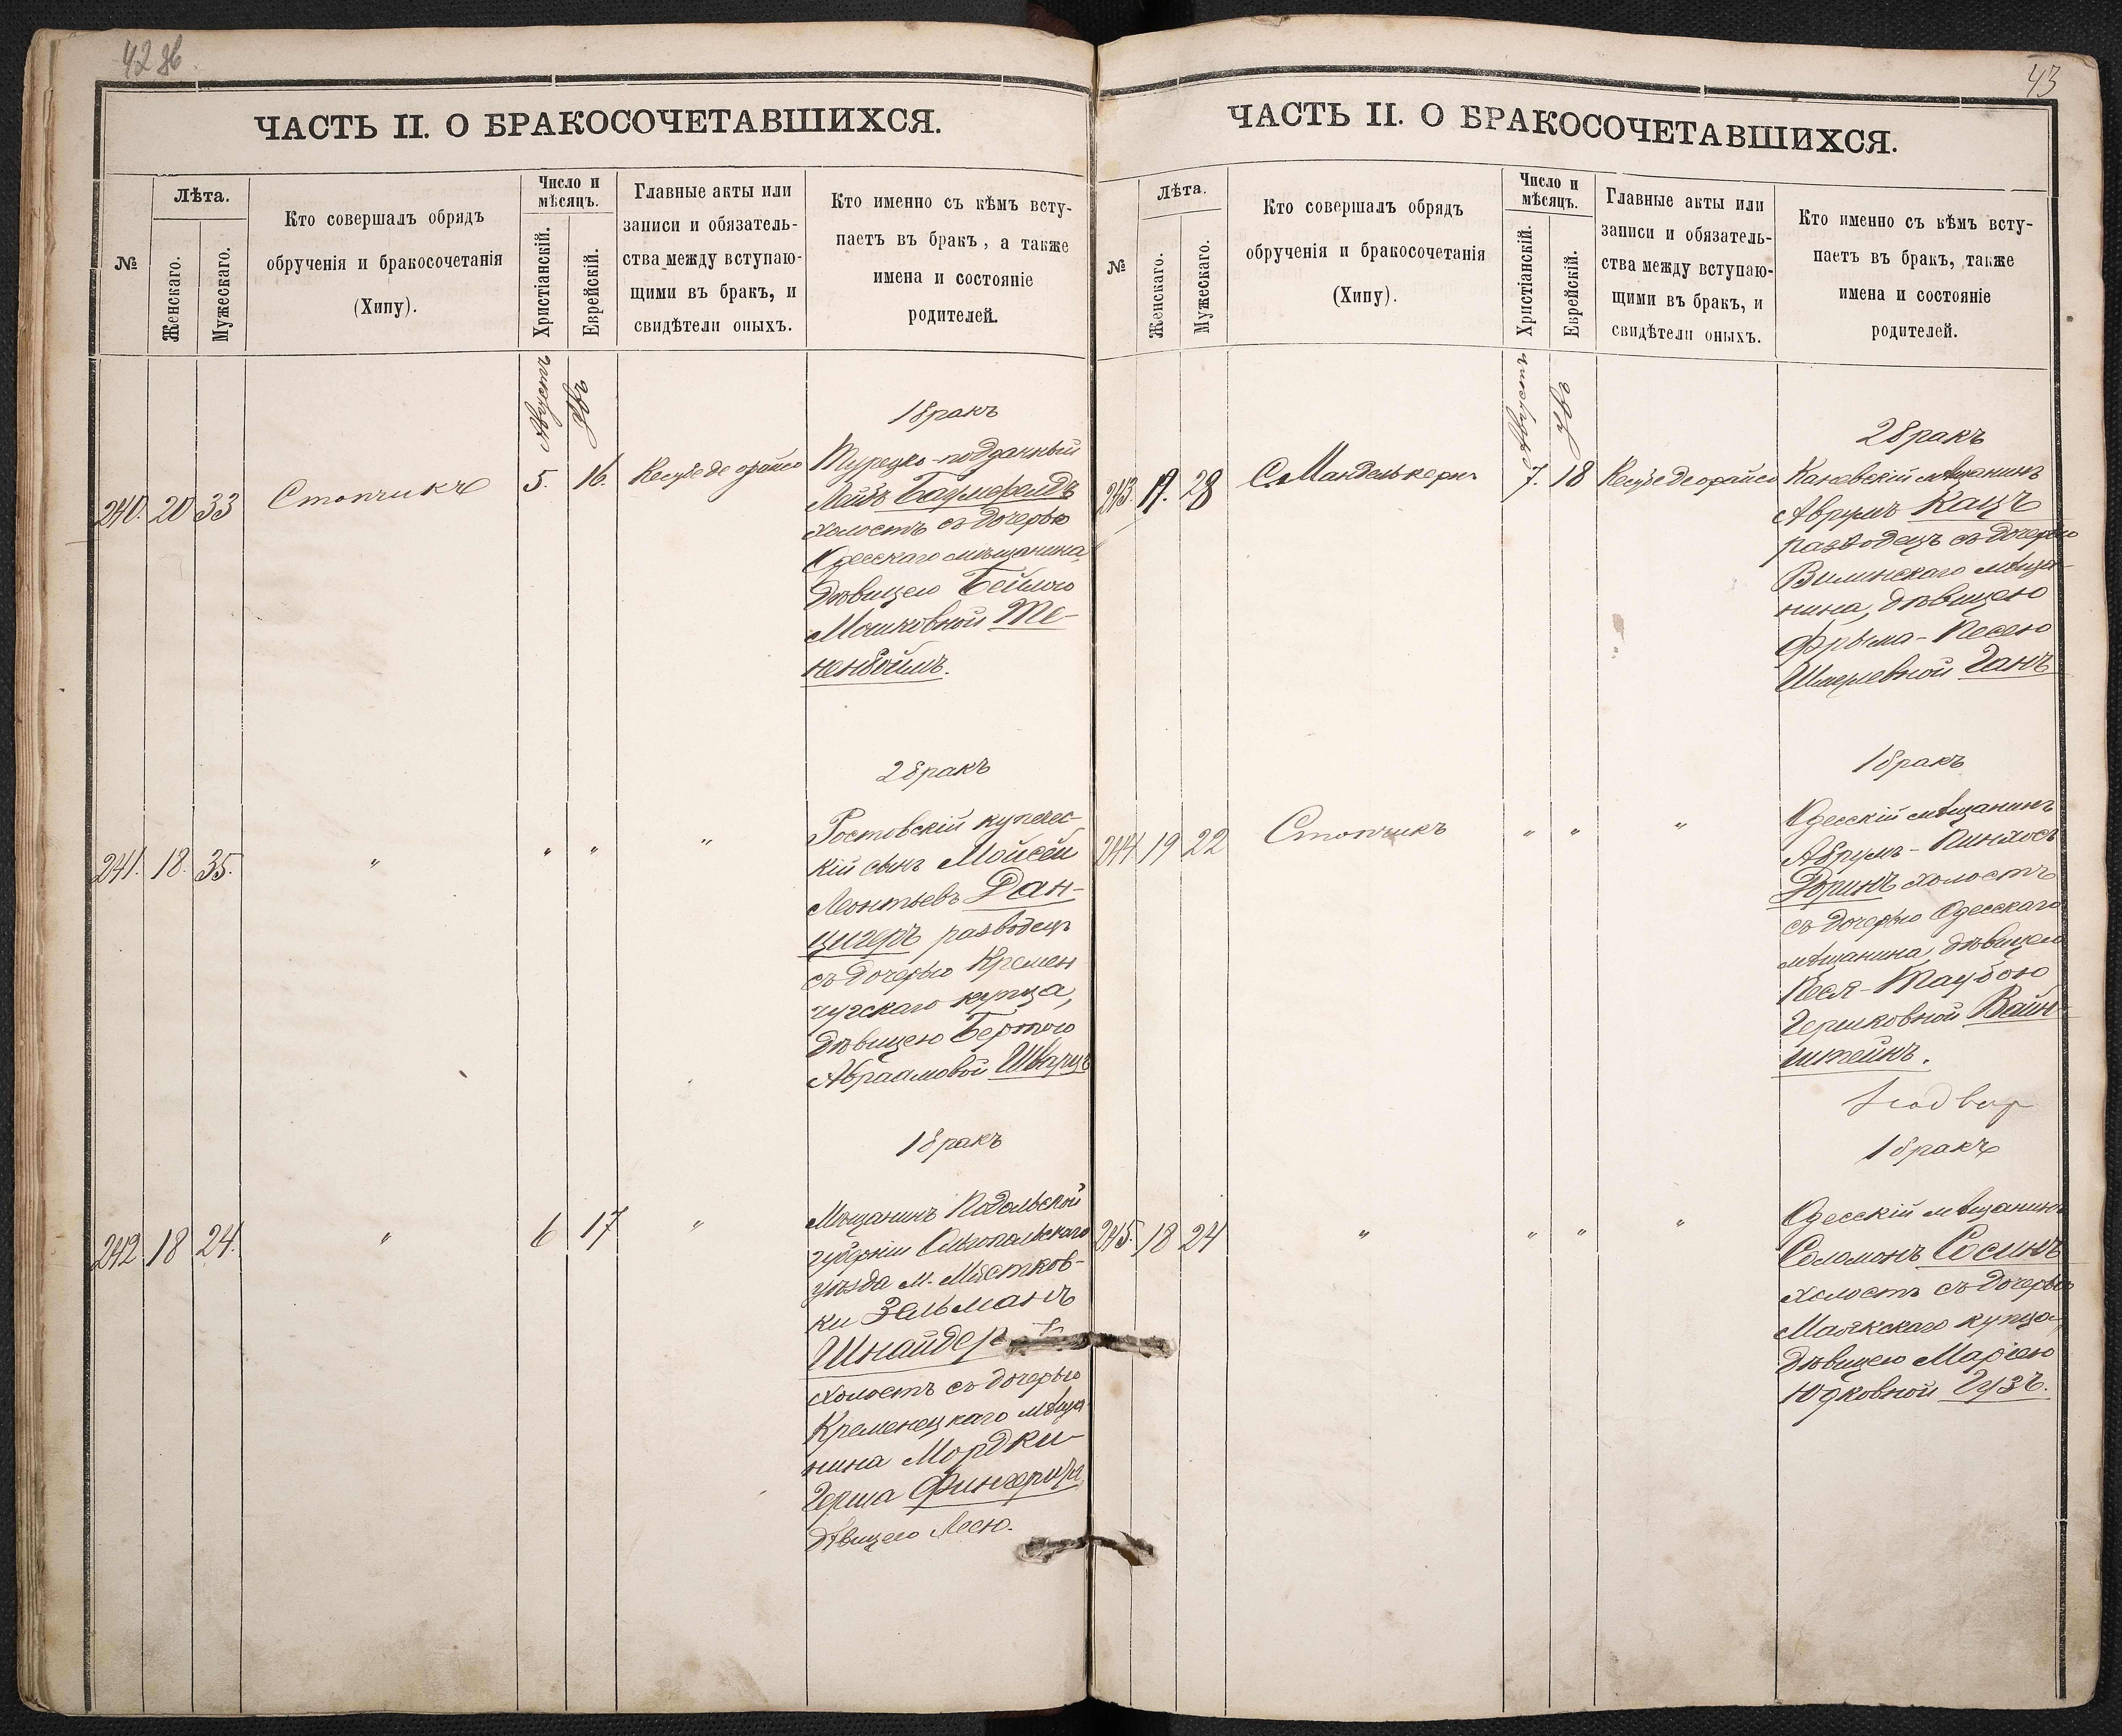 42 зв.
ЧАСТЬ II. О БРАКОСОЧЕТАВШИХСЯ.
№
Лѣта.
Женскаго.
Мужескаго.
Кто совершалъ обрядъ
обрученія и бракосочетанія
(Хипу).
Число и
мѣсяцъ.
Христіанскій.
Еврейскій.
Главные акты или
записи и обязатель-
ства между вступаю-
щими въ бракъ, и
свидѣтели оныхъ.
Кто именно съ кѣмъ всту-
паетъ въ бракъ, а также
имена и состояніе
родителей.
Августъ
1 бракъ
240. 20 33 Стопчикъ 5. 16.
Турецко-подданный
Лейб
холостъ съ дочерью
Одесскаго мѣщанина,
дѣвицею Бейлою
Мошковной Те-
ненбоймъ.
2 бракъ
241. 18. 35. " " " "
Ростовскій купечес-
кій сынъ Мойсей
Леонтьевъ Дан-
цигеръ разводецъ
съ дочерью Кремен
чугскаго купца,
дѣвицею Бертою
Абраамовой Шварцъ
1 бракъ
242 18 24. " 6 17 "
Мѣщанинъ Подольской
губерніи Ольгопольскаго
уѣзда м. Мястков-
ки Зельманъ
Шнайдер
холостъ съ дочерью
Кременецкаго мѣща-
нина Мордки-
Герша
дѣвицею Лесю.
43
ЧАСТЬ II. О БРАКОСОЧЕТАВШИХСЯ.
№
Лѣта.
Женскаго.
Мужескаго.
Кто совершалъ обрядъ
обрученія и бракосочетанія
(Хипу).
Число и
мѣсяцъ.
Христіанскій.
Еврейскій.
Главные акты или
записи и обязатель-
ства между вступаю-
щими въ бракъ, и
свидѣтели оныхъ.
Кто именно съ кѣмъ всту-
паетъ въ бракъ, также
имена и состояніе
родителей.
Августъ
2 бракъ
243. 19. 28 С. Манделькернъ 7. 18
Каневскій мѣщанинъ
Аврумъ Кацъ
разводецъ съ дочерью
Виленскаго мѣща-
нина, дѣвицею
Фрыма-Песею
Шмерлевной Ганъ
1 бракъ
244 19 22 Стопчикъ " " "
Одесскій мѣщанинъ
Абрумъ-Пинхосъ
Доринъ холостъ
съ дочерью Одесскаго
мѣщанина, дѣвицею
Песя-Таубою
Гершковной Вайн-
штейнъ.
1 бракъ
245. 18 24 " " " "
Одесскій мѣщанинъ
Соломонъ Сосинъ
холостъ съ дочерью
Маякскаго купца,
дѣвицею Маріею
Юдковной Гузъ.